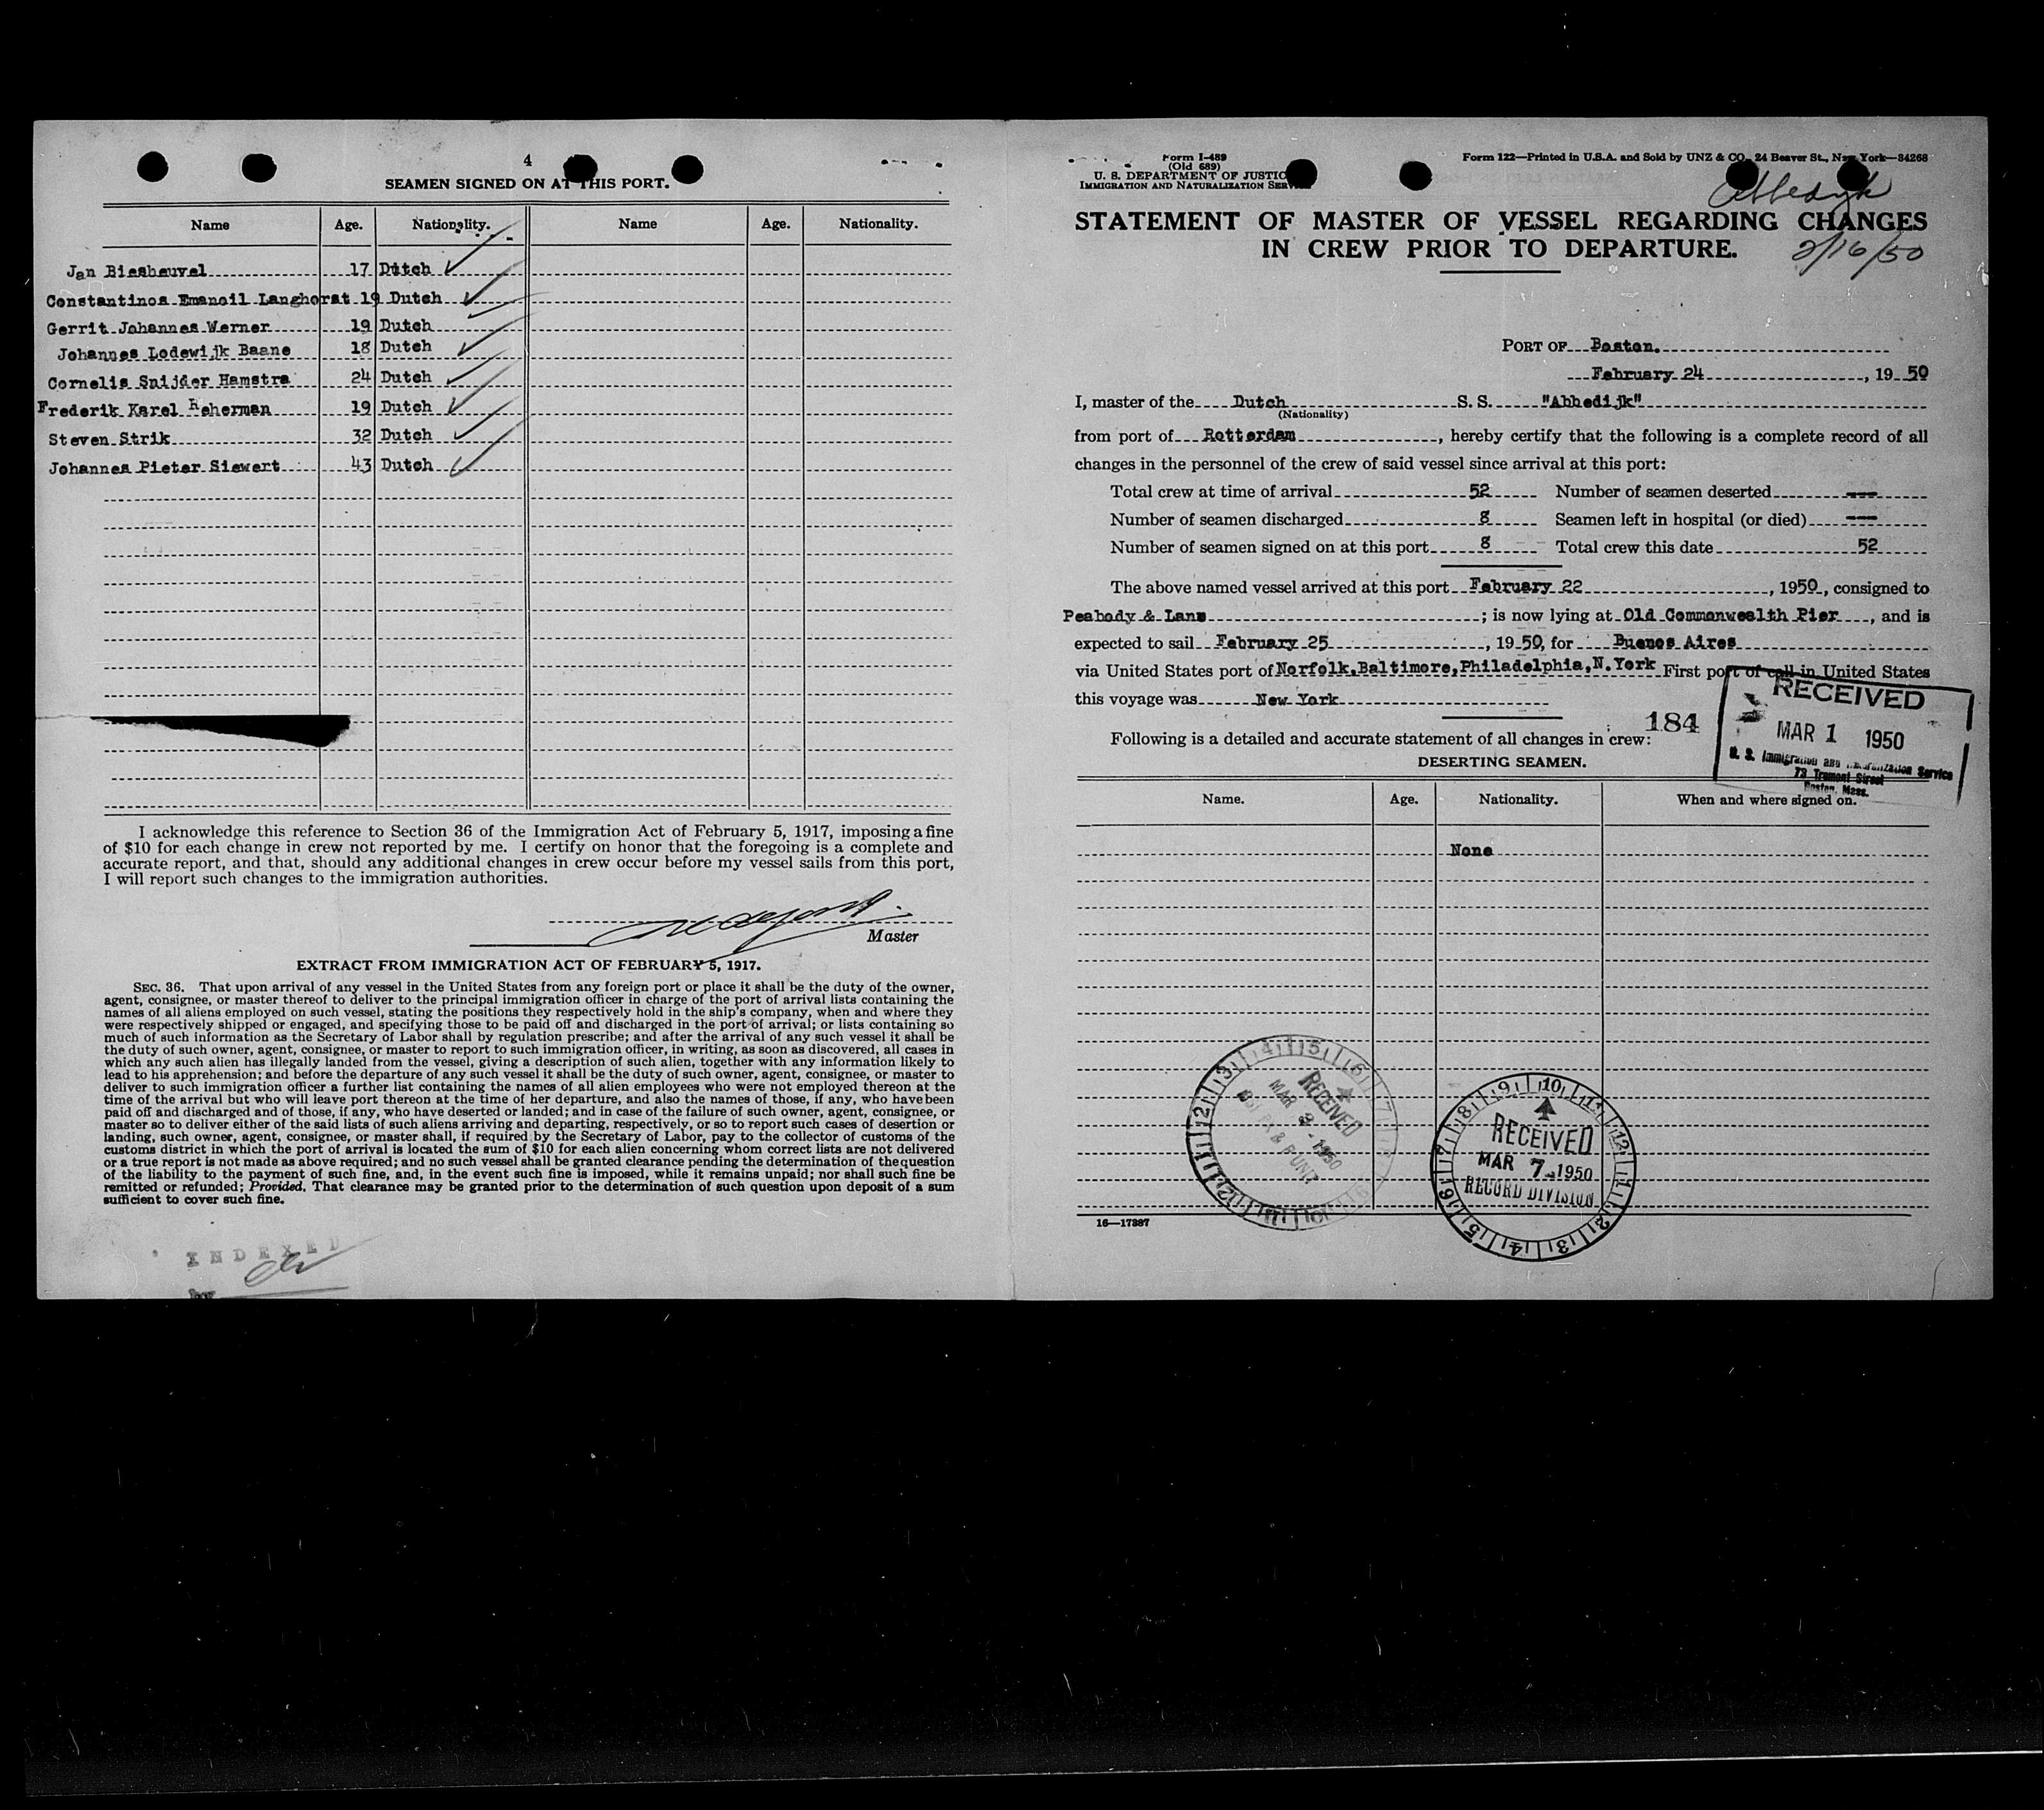 4
SEAMEN SIGNED ON AT THIS PORT.
Name Age. Nationality. Name Age. Nationality.
Jan Biesheuvel 17 Dutch
Constantinos Emanoil Langhorst 19 Dutch
Gerrit Johannes Werner 19 Dutch
Johannes Lodewijk Baane 18 Dutch
Cornelis Snijder Hamstra 24 Dutch
Frederik Karel Heherman 19 Dutch
Steven Strik 32 Dutch
Johannes Pieter Siewert 43 Dutch
I acknowledge this reference to Section 36 of the Immigration Act of February 5, 1917, imposing a fine
of $10 for each change in crew not reported by me. I certify on honor that the foregoing is a complete and
accurate report, and that, should any additional changes in crew occur before my vessel sails from this port,
I will report such changes to the immigration authorities.
Master
EXTRACT FROM IMMIGRATION ACT OF FEBRUARY 5, 1917.
SEC. 36. That upon arrival of any vessel in the United States from any foreign port or place it shall be the duty of the owner,
agent, consignee, or master thereof to deliver to the principal immigration officer in charge of the port of arrival lists containing the
names of all aliens employed on such vessel, stating the positions they respectively hold in the ship's company, when and where they
were respectively shipped or engaged, and specifying those to be paid off and discharged in the port of arrival; or lists containing so
much of such information as the Secretary of Labor shall by regulation prescribe; and after the arrival of any such vessel it shall be
the duty of such owner, agent, consignee, or master to report to such immigration officer, in writing, as soon as discovered, all cases in
which any such alien has illegally landed from the vessel, giving a description of such alien, together with any information likely to
lead to his apprehension; and before the departure of any such vessel it shall be the duty of such owner, agent, consignee, or master to
deliver to such immigration officer a further list containing the names of all alien employees who were not employed thereon at the
time of the arrival but who will leave port thereon at the time of her departure, and also the names of those, if any, who have been
paid off and discharged and of those, if any, who have deserted or landed; and in case of the failure of such owner, agent, consignee, or
master so to deliver either of the said lists of such aliens arriving and departing, respectively, or so to report such cases of desertion or
landing, such owner, agent, consignee, or master shall, if required by the Secretary of Labor, pay to the collector of customs of the
customs district in which the port of arrival is located the sum of $10 for each alien concerning whom correct lists are not delivered
or a true report is not made as above required; and no such vessel shall be granted clearance pending the determination of the question
of the liability to the payment of such fine, and, in the event such fine is imposed, while it remains unpaid; nor shall such fine be
remitted or refunded; Provided, That clearance may be granted prior to the determination of such question upon deposit of a sum
sufficient to cover such fine.
INDEXED
by
Form I-489
(Old 689)
U. S. DEPARTMENT OF JUSTICE
IMMIGRATION AND NATURALIZATION SERVICE
Form 122—Printed in U.S.A. and Sold by UNZ & CO., 24 Beaver St., New York—84268
Abbedyk
STATEMENT OF MASTER OF VESSEL REGARDING CHANGES
IN CREW PRIOR TO DEPARTURE.
2/16/50
PORT OF Boston.
February 24, 19 50
I, master of the Dutch S. S. "Abbedijk"
(Nationality)
from port of Rotterdam, hereby certify that the following is a complete record of all
changes in the personnel of the crew of said vessel since arrival at this port:
Total crew at time of arrival 52 Number of seamen deserted ---
Number of seamen discharged 8 Seamen left in hospital (or died) ---
Number of seamen signed on at this port 8 Total crew this date 52
The above named vessel arrived at this port February 22, 1950, consigned to
Peabody & Lane; is now lying at Old Commonwealth Pier, and is
expected to sail February 25, 1950, for Buenos Aires
via United States port of Norfolk,Baltimore,Philadelphia,N.York First port of call in United States
this voyage was New York
184
RECEIVED
MAR 1 1950
U. S. Immigration and Naturalization Service
73 Tremont Street
Boston, Mass.
Following is a detailed and accurate statement of all changes in crew:
DESERTING SEAMEN.
Name. Age. Nationality. When and where signed on.
None
RECEIVED
MAR 3 - 1950
RECEIVED
MAR 7 - 1950
RECORD DIVISION
16—17387